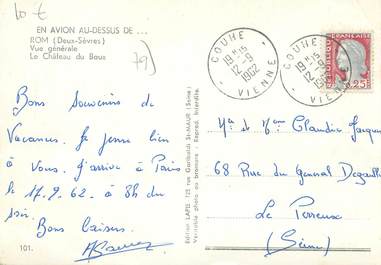 10 €
EN AVION AU-DESSUS DE ...
ROM (Deux-Sèvres)
Vue générale
Le Château du Bous
79)
Bons Souvenirs de
Vacances. Je pense bien
à Vous. J'arrive à Paris
le 17.9.62 à 8h du
soir.
Bons baisers.
101.
Edition LAPIE - 125 rue Garibaldi St-MAUR (Seine)
Véritable photo au bromure - Reprod. Interdite.
COUHE
19H15
12-9
1962
VIENNE
COUHE
19H15
12-9
VIENNE
REPUBLIQUE FRANÇAISE
0,25
Mr et Mme Claudin
68 Rue du General Degaulle
Le Perreux
(Seine)